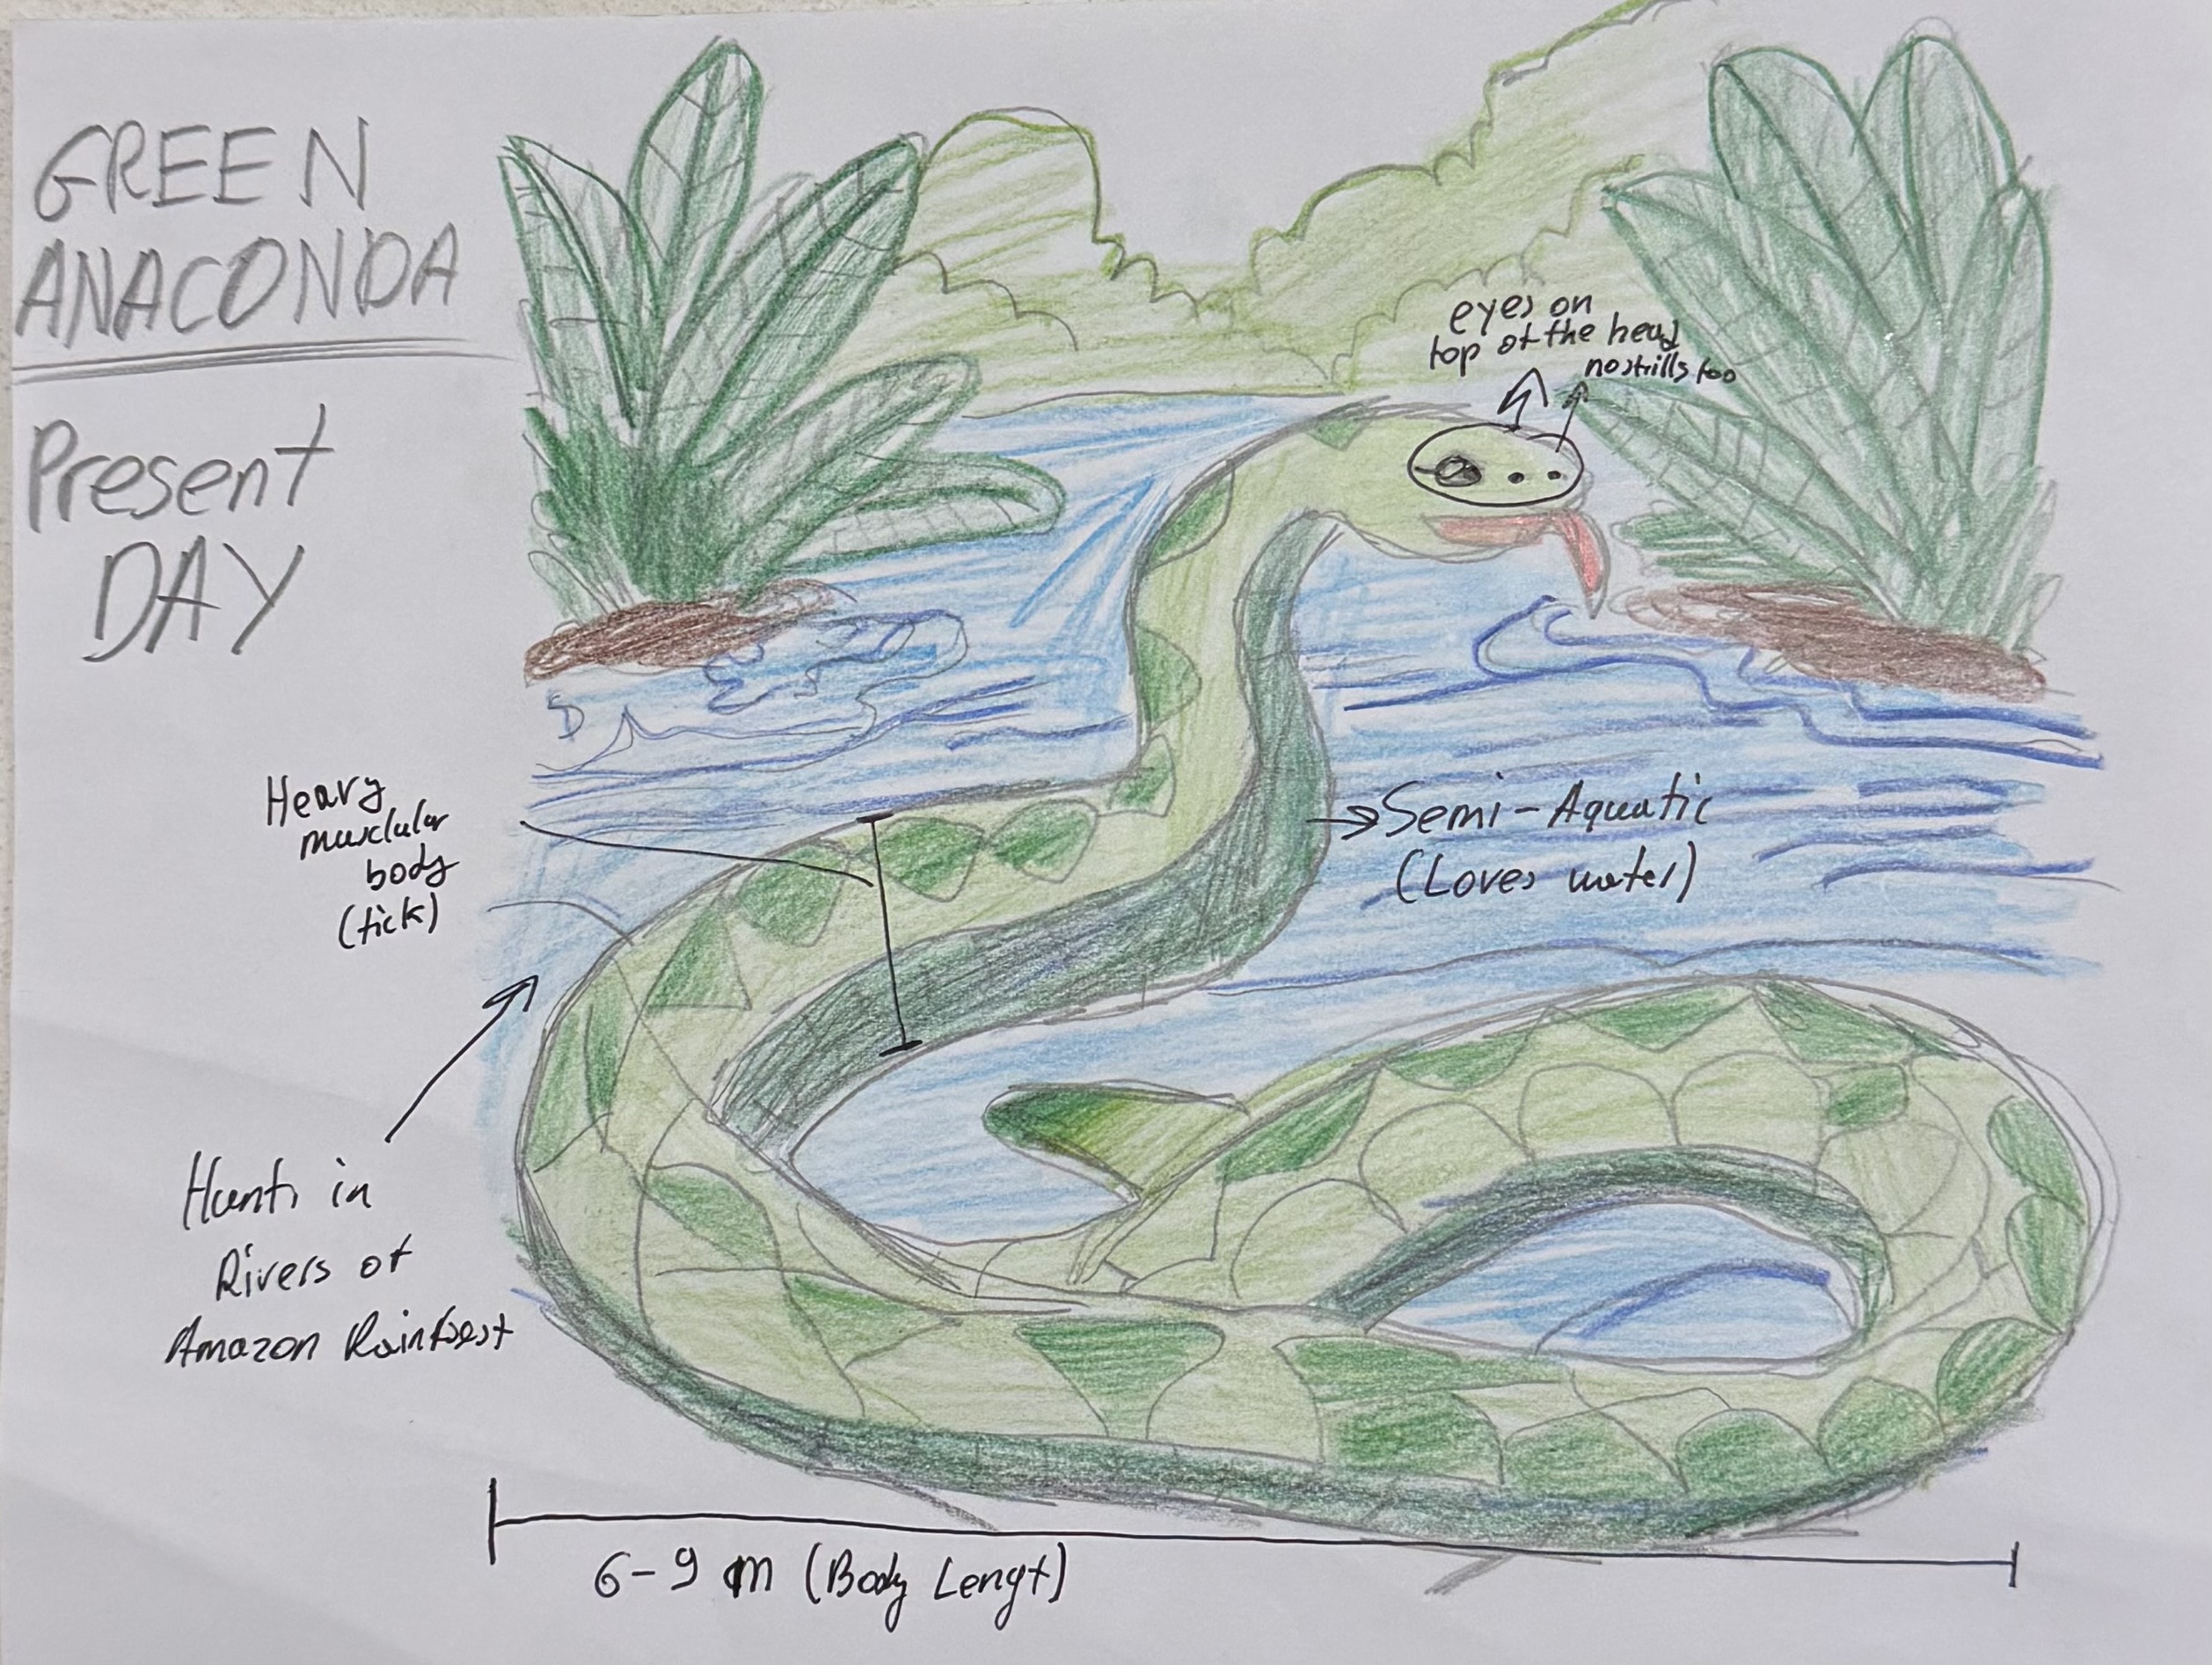 GREEN
ANACONDA
Present
DAY
eyes on
top of the head
nostrills too
Heavy
musclular
body
(tick)
Semi-Aquatic
(Loves water)
Hunts in
Rivers of
Amazon Rainforest
6-9 m (Body Lengt)